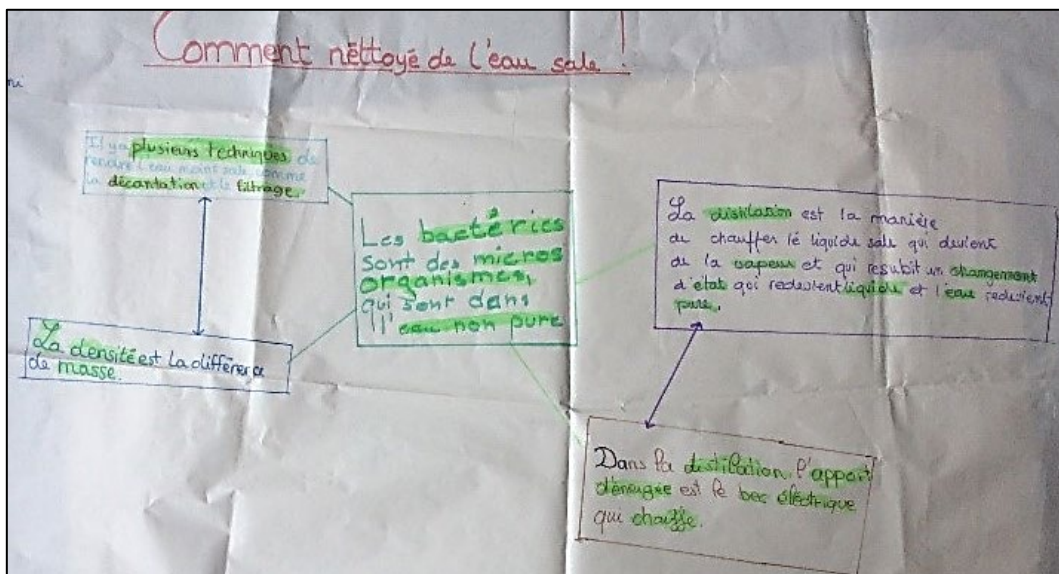 Comment nettoyé de l'eau sale !
Il y a plusieurs techniques de
rendre l'eau moins sale comme
la décantation et le filtrage.
Les bactéries
sont des micros
organismes,
qui sont dans
l'eau non pure
La distilasion est la manière
de chauffer le liquide sale qui devient
de la vapeur et qui resubit un changement
d'état qui redevient liquide et l'eau redevient
pure.
La densité est la différence
de masse.
Dans la distilation, l'apport
d'énergée est le bec éléctrique
qui chauffe.